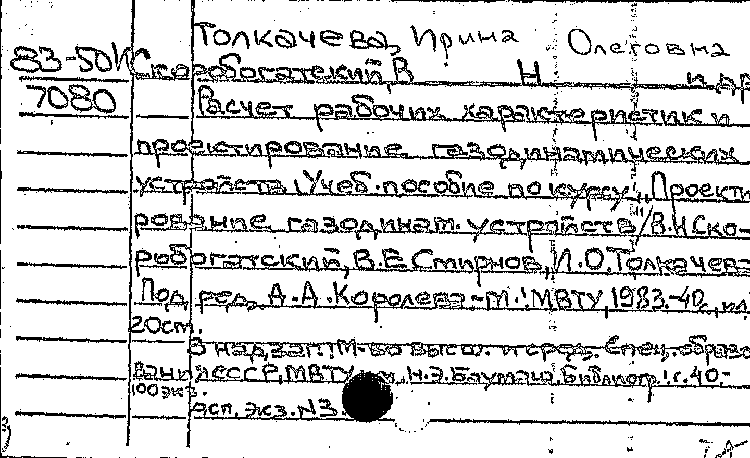 Толкачева, Ирина Олеговна
83-50И Скоробогатский, В Н и др
7080 Расчет рабочих характеристик и
проектирование газодинамических
устройств: Учеб. пособие по курсу „Проекти
рование газодинам. устройств"/В.Н Ско-
робогатский, В.Е. Смирнов, И.О. Толкачева
Под ред. А.А. Королева-М.: МВТУ, 1983.-40., ил
20см.
В надзаг.: М-во высш. и сред. спец. образо
вания СССР, МВТУ им. Н.Э. Баумана. Библиогр.: с. 40.-
100 экз.
эсп. экз. N3.